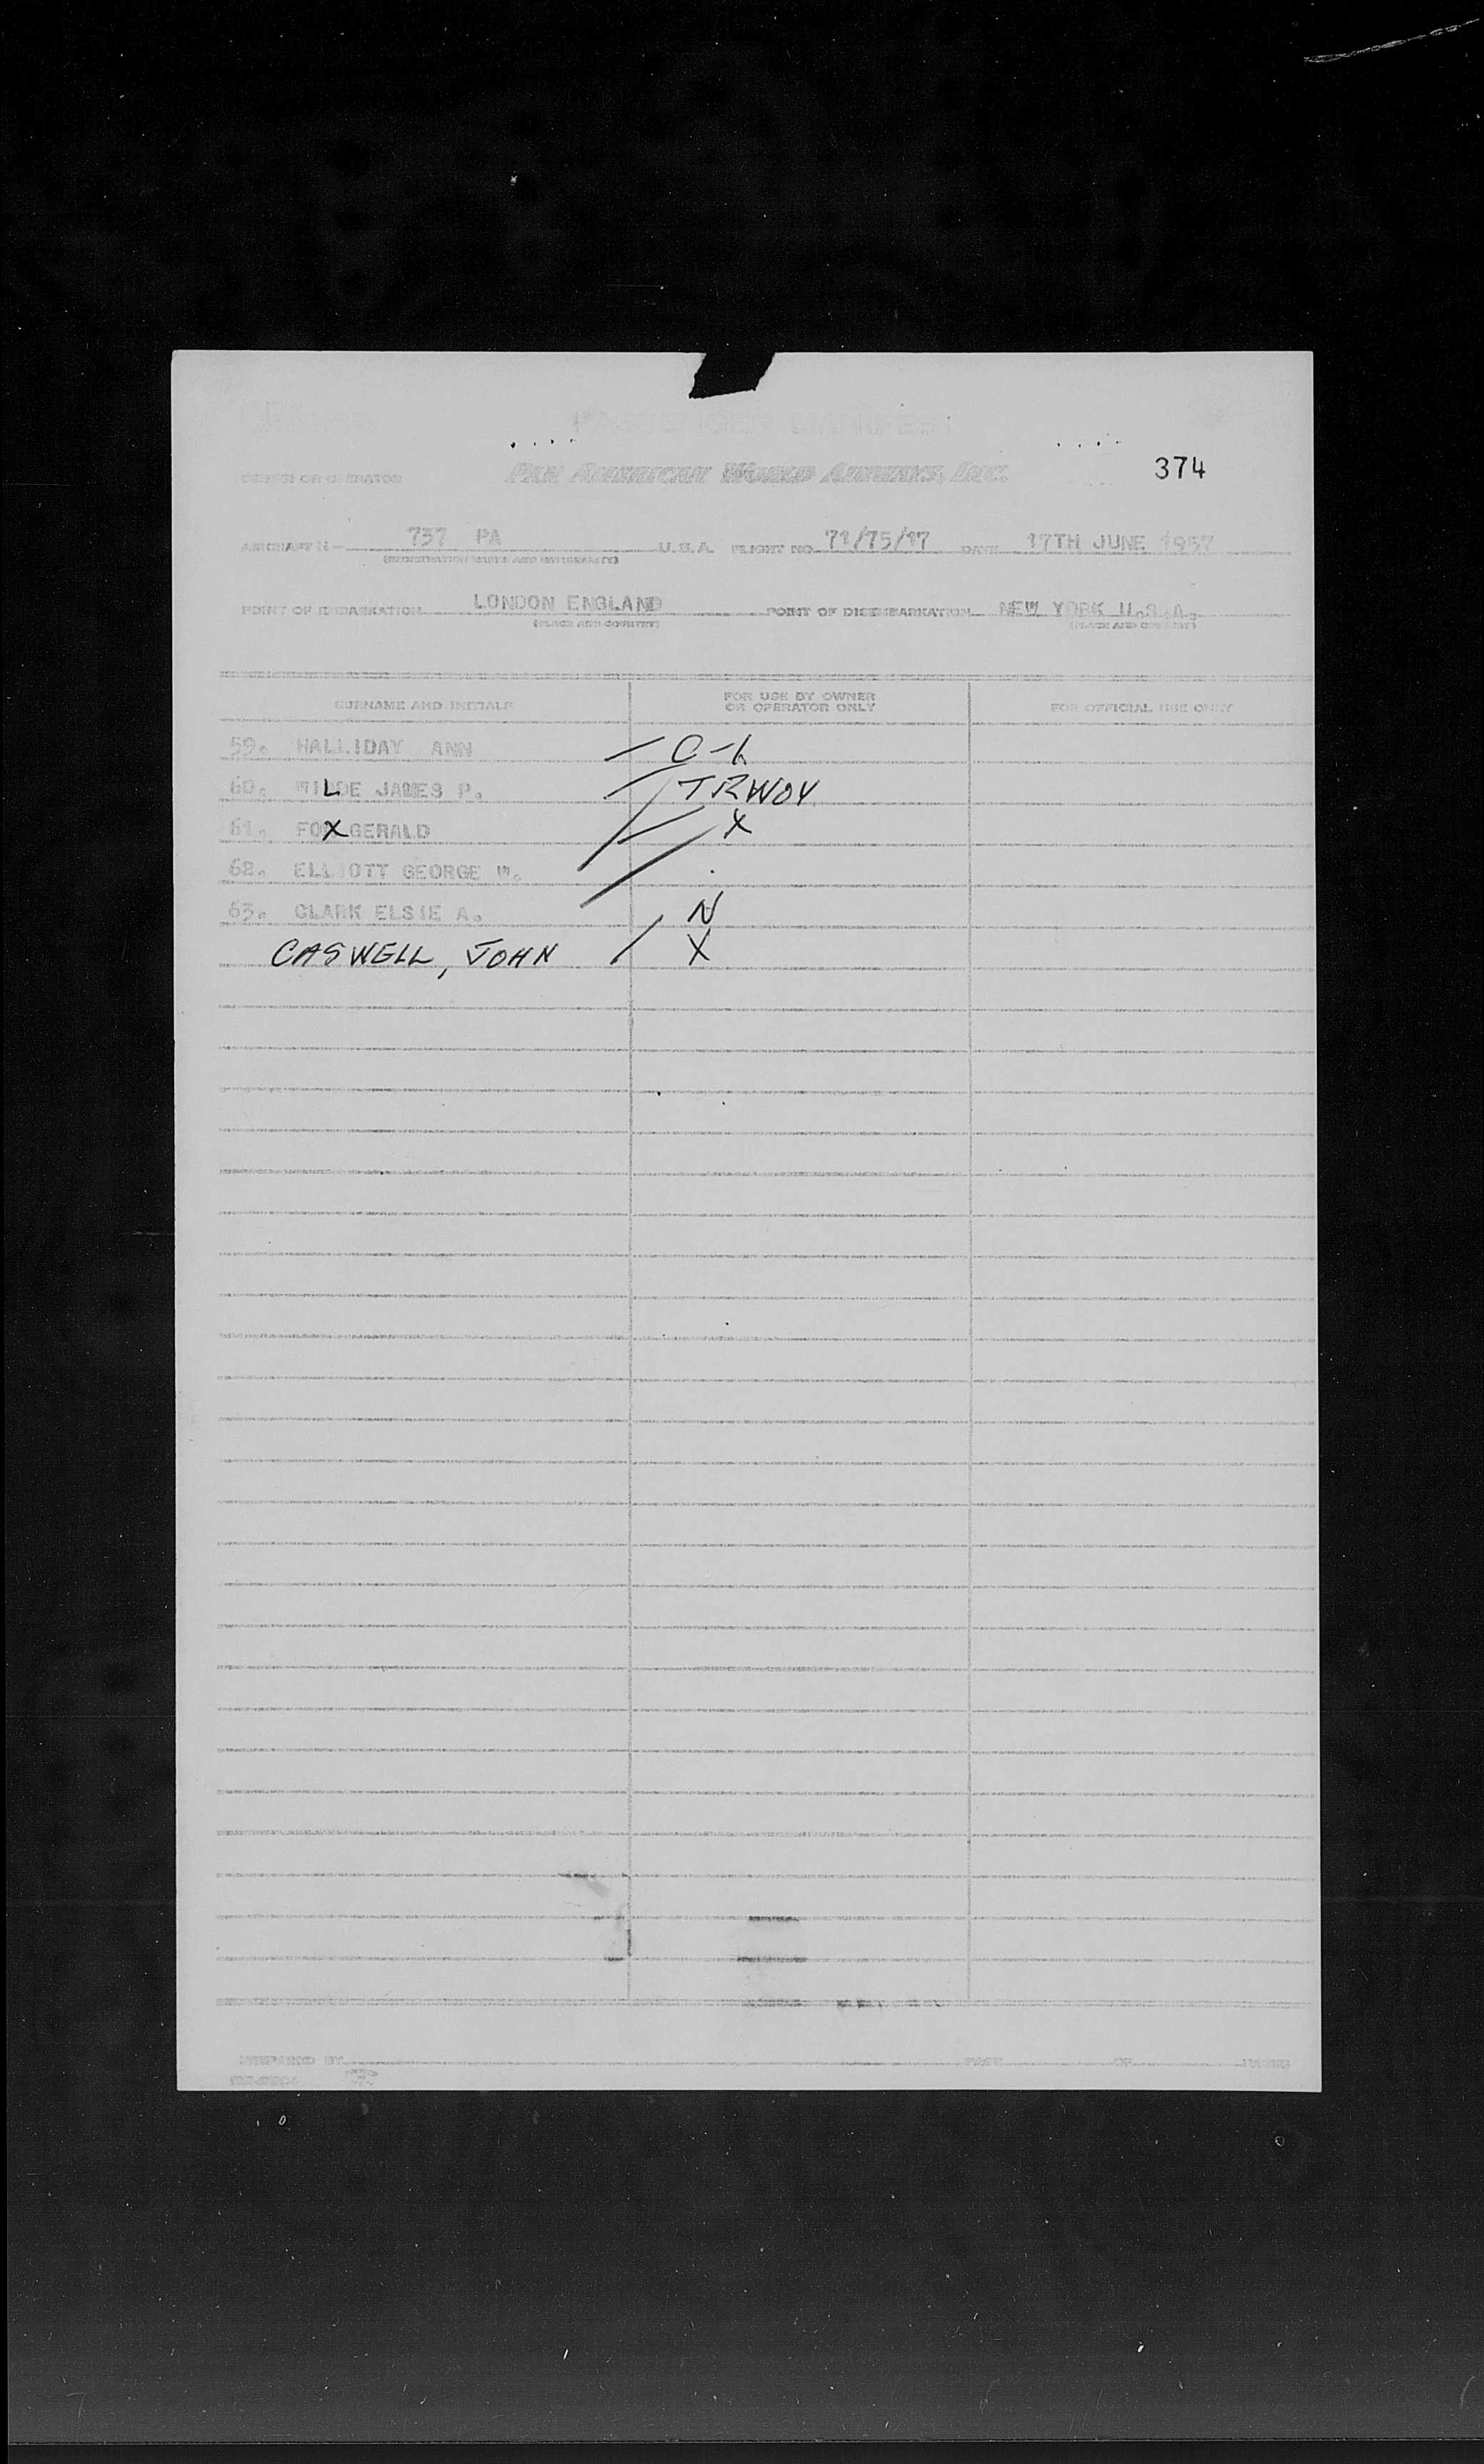 PASSENGER MANIFEST
374
OWNER OR OPERATOR PAN AMERICAN WORLD AIRWAYS, INC.
AIRCRAFT N- 737 PA U.S.A. FLIGHT NO. 71/75/17 DATE 17TH JUNE 1957
(REGISTRATION MARKS AND NATIONALITY)
POINT OF EMBARKATION LONDON ENGLAND POINT OF DISEMBARKATION NEW YORK U.S.A.
(PLACE AND COUNTRY) (PLACE AND COUNTRY)
SURNAME AND INITIALS FOR USE BY OWNER OR OPERATOR ONLY FOR OFFICIAL USE ONLY
59. HALLIDAY ANN C-1
60. WILDE JAMES P. TRWOY
61. FOX GERALD X
62. ELLIOTT GEORGE W.
63. CLARK ELSIE A. N
CASWELL, JOHN X
PREPARED BY PAGE OF PAGES